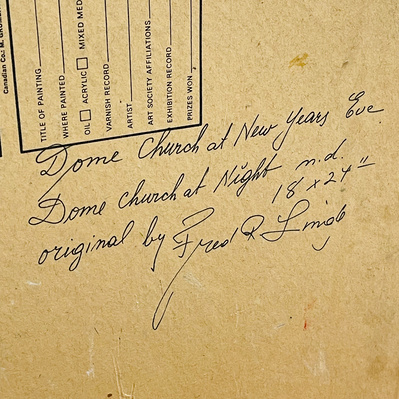 Canadian Co.: M.
TITLE OF PAINTING
WHERE PAINTED
OIL ACRYLIC MIXED MED
VARNISH RECORD
ARTIST
ART SOCIETY AFFILIATIONS
EXHIBITION RECORD
PRIZES WON
Dome Church at New Years Eve
Dome church at Night n.d.
18 x 24"
original by Fred R